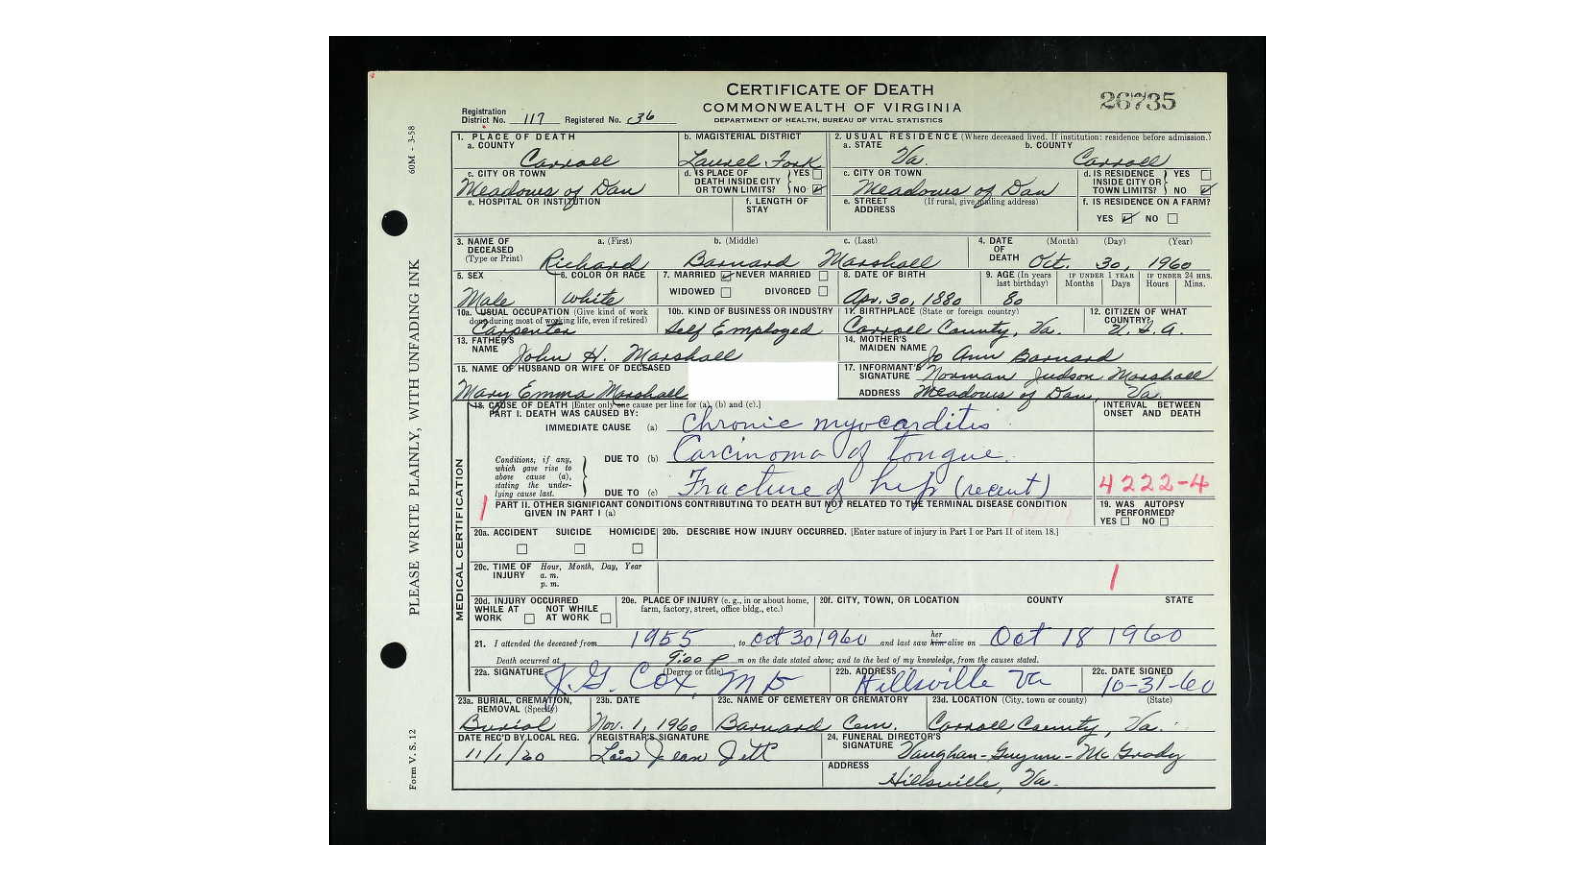 CERTIFICATE OF DEATH
COMMONWEALTH OF VIRGINIA
DEPARTMENT OF HEALTH, BUREAU OF VITAL STATISTICS
26735
Registration District No. 117 Registered No. 36
60M - 3-58
PLEASE WRITE PLAINLY, WITH UNFADING INK
Form V. S. 12
1. PLACE OF DEATH
a. COUNTY Carroll
b. MAGISTERIAL DISTRICT Laurel Fork
2. USUAL RESIDENCE (Where deceased lived. If institution: residence before admission.)
a. STATE Va.
b. COUNTY Carroll
c. CITY OR TOWN Meadows of Dan
d. IS PLACE OF DEATH INSIDE CITY OR TOWN LIMITS? YES NO
c. CITY OR TOWN Meadows of Dan
d. IS RESIDENCE INSIDE CITY OR TOWN LIMITS? YES NO
e. HOSPITAL OR INSTITUTION
f. LENGTH OF STAY
e. STREET ADDRESS (If rural, give mailing address)
f. IS RESIDENCE ON A FARM? YES NO
3. NAME OF DECEASED (Type or Print)
a. (First) Richard
b. (Middle) Barnard
c. (Last) Marshall
4. DATE OF DEATH (Month) (Day) (Year) Oct. 30, 1960
5. SEX Male
6. COLOR OR RACE White
7. MARRIED NEVER MARRIED WIDOWED DIVORCED
8. DATE OF BIRTH Apr. 30, 1880
9. AGE (In years last birthday) 80
IF UNDER 1 YEAR Months Days
IF UNDER 24 HRS. Hours Mins.
10a. USUAL OCCUPATION (Give kind of work done during most of working life, even if retired) Carpenter
10b. KIND OF BUSINESS OR INDUSTRY Self Employed
11. BIRTHPLACE (State or foreign country) Carroll County, Va.
12. CITIZEN OF WHAT COUNTRY? U.S.A.
13. FATHER'S NAME John H. Marshall
14. MOTHER'S MAIDEN NAME Jo Ann Barnard
15. NAME OF HUSBAND OR WIFE OF DECEASED Mary Emma Marshall
17. INFORMANT'S SIGNATURE Norman Judson Marshall
ADDRESS Meadows of Dan, Va.
18. CAUSE OF DEATH [Enter only one cause per line for (a), (b) and (c).]
INTERVAL BETWEEN ONSET AND DEATH
MEDICAL CERTIFICATION
PART I. DEATH WAS CAUSED BY:
IMMEDIATE CAUSE (a) Chronic myocarditis
Conditions, if any, which gave rise to above cause (a), stating the underlying cause last.
DUE TO (b) Carcinoma of tongue.
DUE TO (c) Fracture of hip (recent)
4222-4
1
PART II. OTHER SIGNIFICANT CONDITIONS CONTRIBUTING TO DEATH BUT NOT RELATED TO THE TERMINAL DISEASE CONDITION GIVEN IN PART I (a)
19. WAS AUTOPSY PERFORMED? YES NO
20a. ACCIDENT SUICIDE HOMICIDE
20b. DESCRIBE HOW INJURY OCCURRED. [Enter nature of injury in Part I or Part II of item 18.]
20c. TIME OF INJURY Hour, Month, Day, Year a. m. p. m.
1
20d. INJURY OCCURRED WHILE AT WORK NOT WHILE AT WORK
20e. PLACE OF INJURY (e. g., in or about home, farm, factory, street, office bldg., etc.)
20f. CITY, TOWN, OR LOCATION COUNTY STATE
21. I attended the deceased from 1955, to Oct 30 1960 and last saw her him alive on Oct 18 1960
Death occurred at 9:00 p m on the date stated above; and to the best of my knowledge, from the causes stated.
22a. SIGNATURE (Degree or title) J. G. Cox, MD
22b. ADDRESS Hillsville Va
22c. DATE SIGNED 10-31-60
23a. BURIAL, CREMATION, REMOVAL (Specify) Burial
23b. DATE Nov. 1, 1960
23c. NAME OF CEMETERY OR CREMATORY Barnard Cem.
23d. LOCATION (City, town or county) (State) Carroll County, Va.
DATE REC'D BY LOCAL REG. 11/1/60
REGISTRAR'S SIGNATURE Lois Jean Jett
24. FUNERAL DIRECTOR'S SIGNATURE Vaughan-Guynn-McGrady
ADDRESS Hillsville, Va.